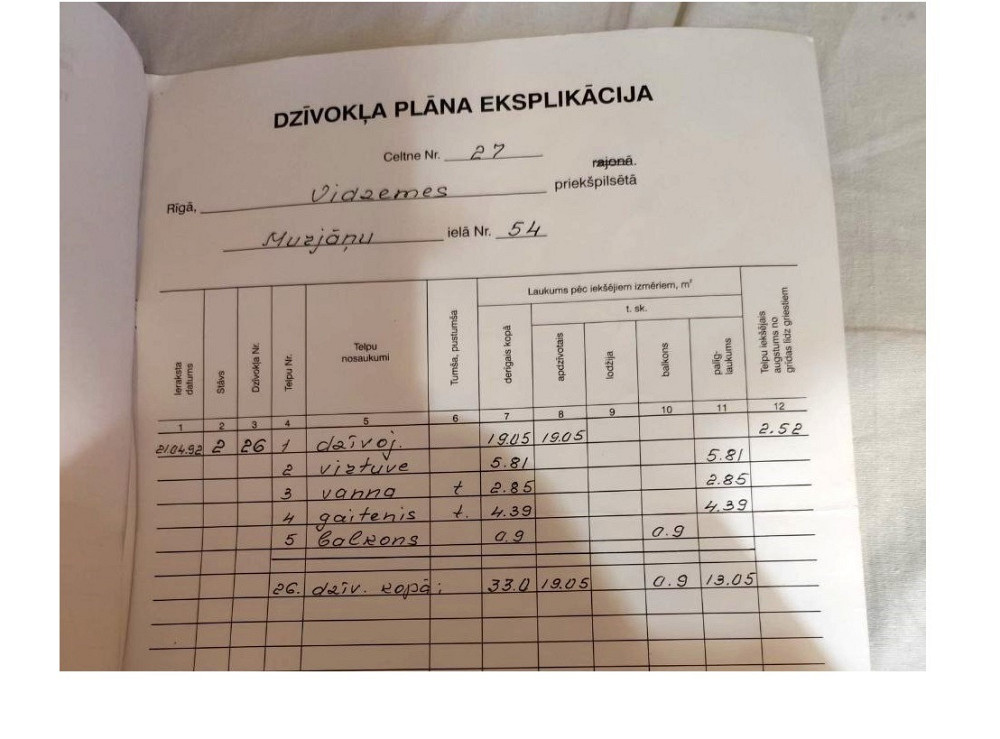 DZĪVOKĻA PLĀNA EKSPLIKĀCIJA
Celtne Nr. 27
rajonā.
Rīgā, Vidzemes priekšpilsētā
Murjāņu ielā Nr. 54
Ieraksta datums
Stāvs
Dzīvokļa Nr.
Telpu Nr.
Telpu nosaukumi
Tumša, pustumša
Laukums pēc iekšējiem izmēriem, m²
t. sk.
derīgais kopā
apdzīvotais
lodžija
balkons
palīg-laukums
Telpu iekšējais augstums no grīdas līdz griestiem
1 2 3 4 5 6 7 8 9 10 11 12
21.04.92 2 26 1 dzīvoj. 19.05 19.05 2.52
2 virtuve 5.81 5.81
3 vanna t 2.85 2.85
4 gaitenis t. 4.39 4.39
5 balkons 0.9 0.9
26. dzīv. kopā: 33.0 19.05 0.9 13.05